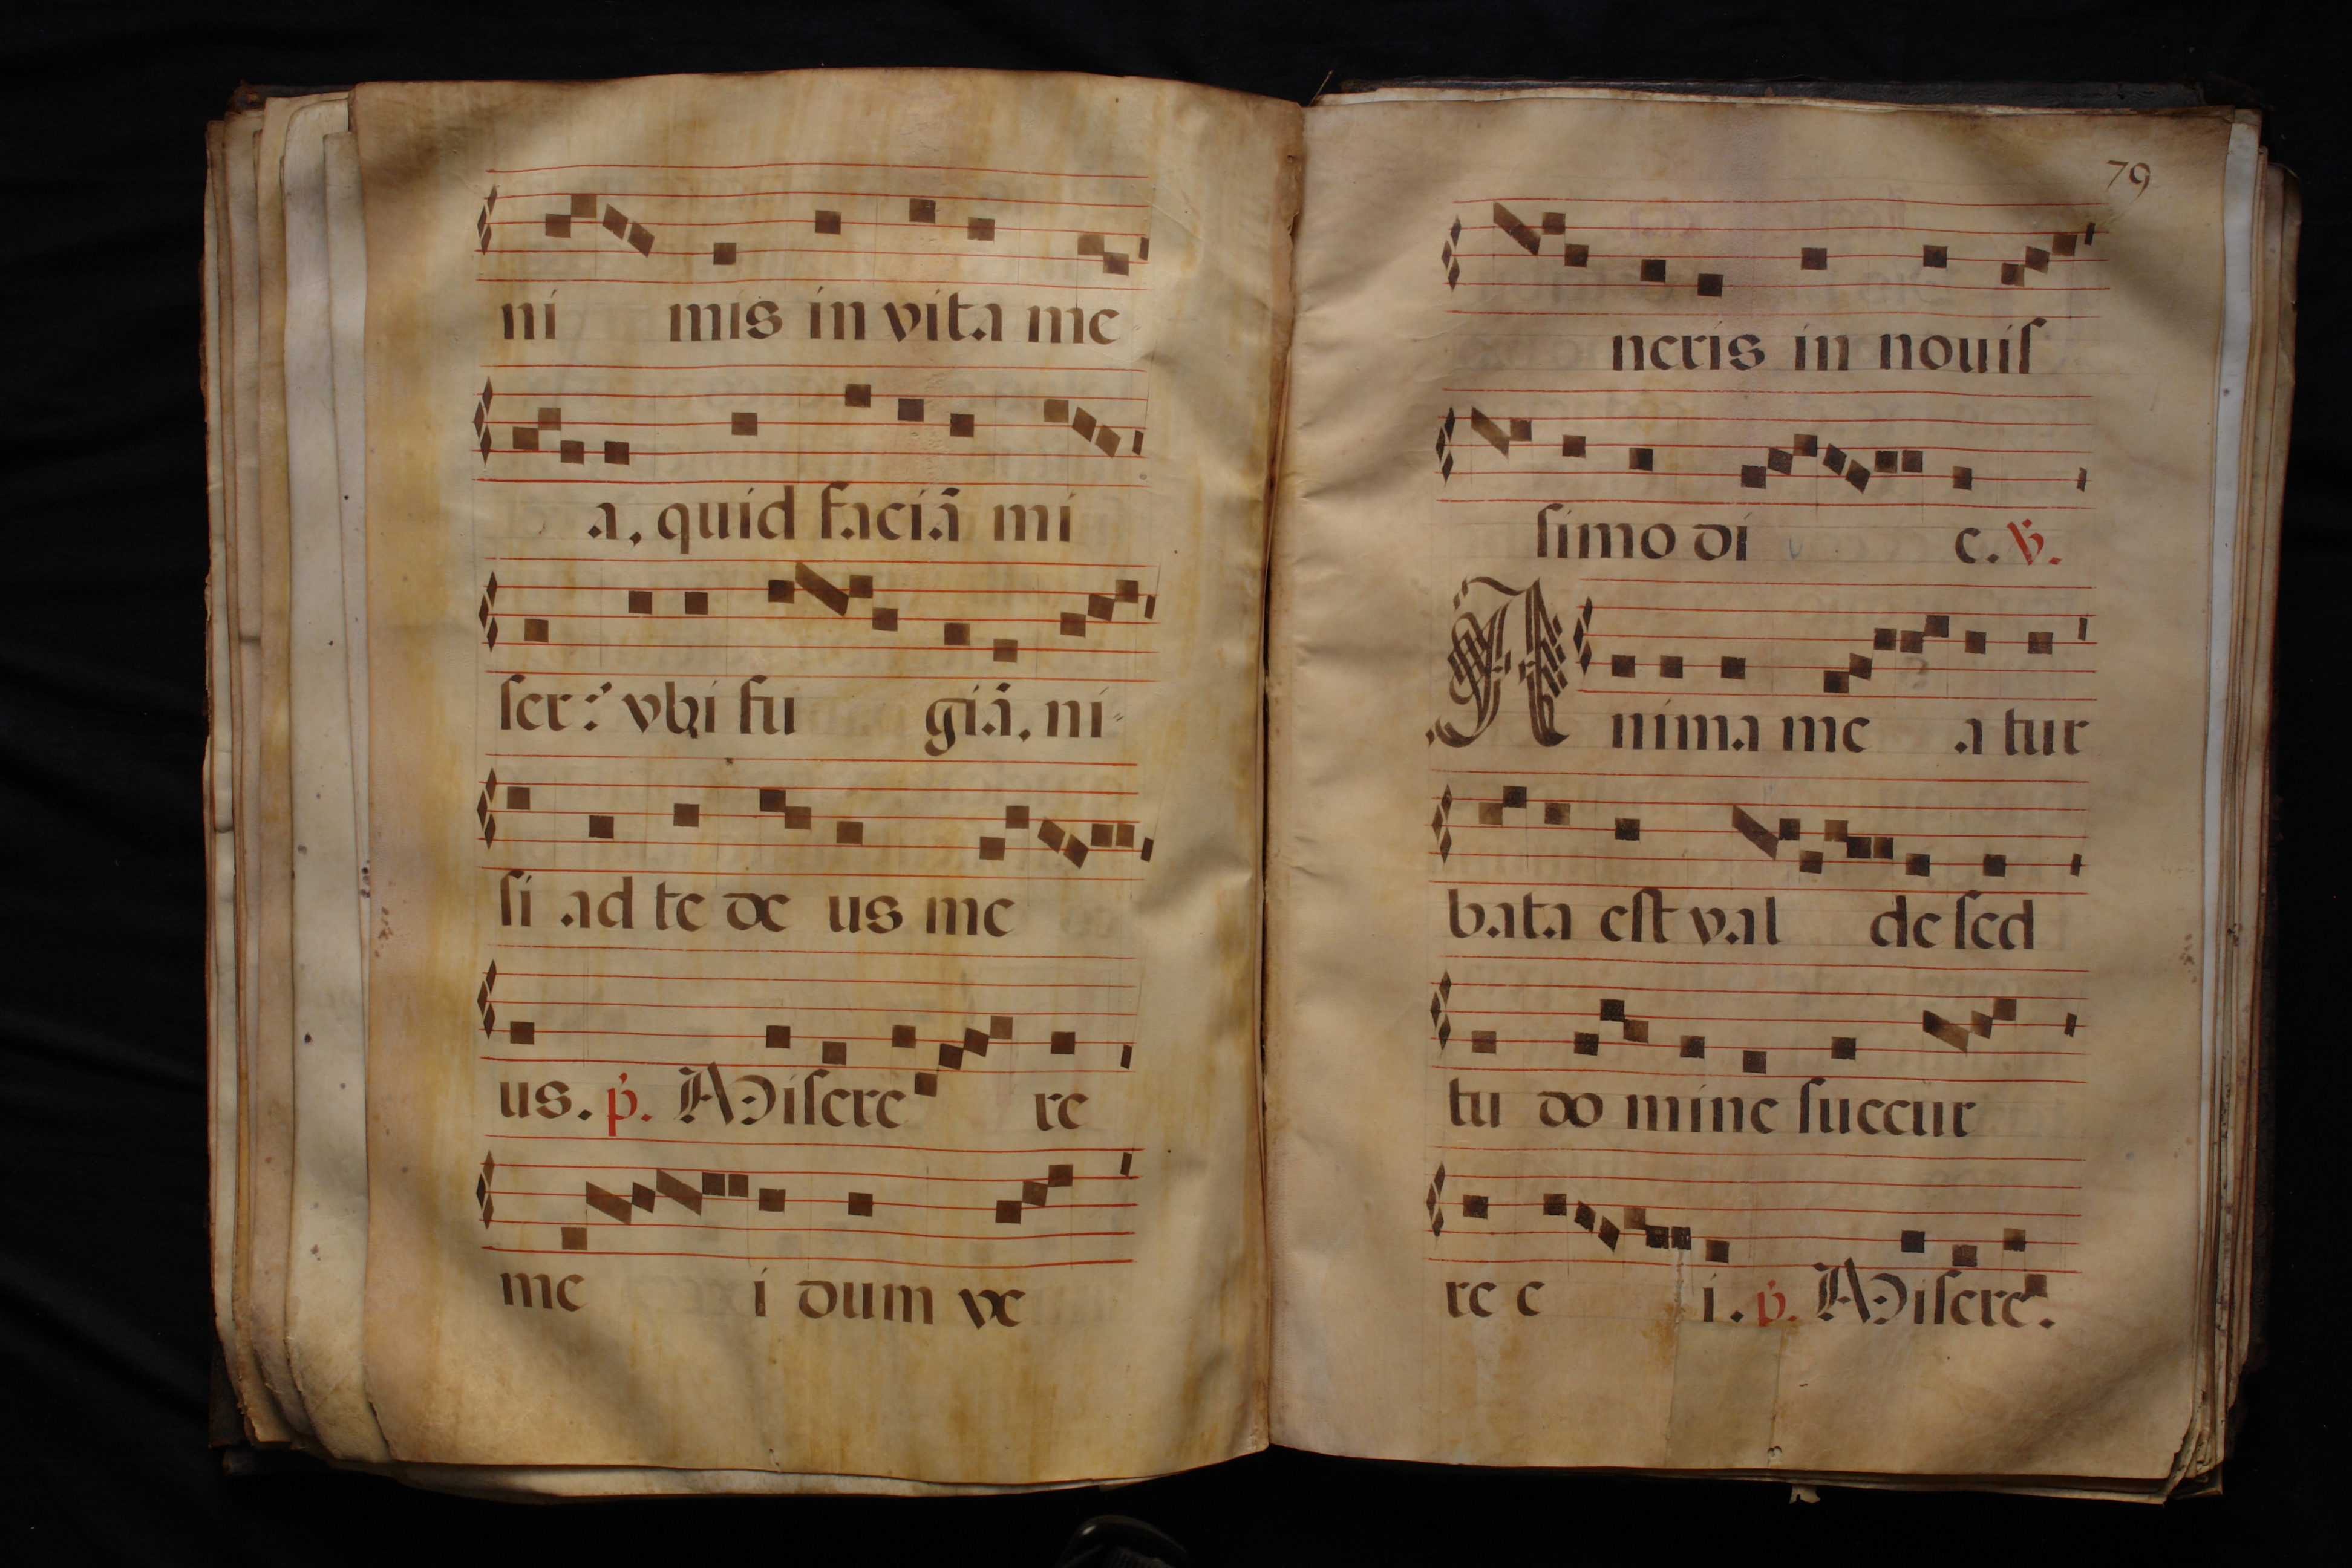 ni mis in vita me
a, quid faciā mi
ſer? vbi fu giā, ni-
ſi ad te de us me
us. p̕. Miſere re
me i dum ve
79
neris in nouiſ
ſimo di e. v̕.
A nima me a tur
bata eſt val de ſed
tu do mine ſuccur
re e i. p̕. Miſere.